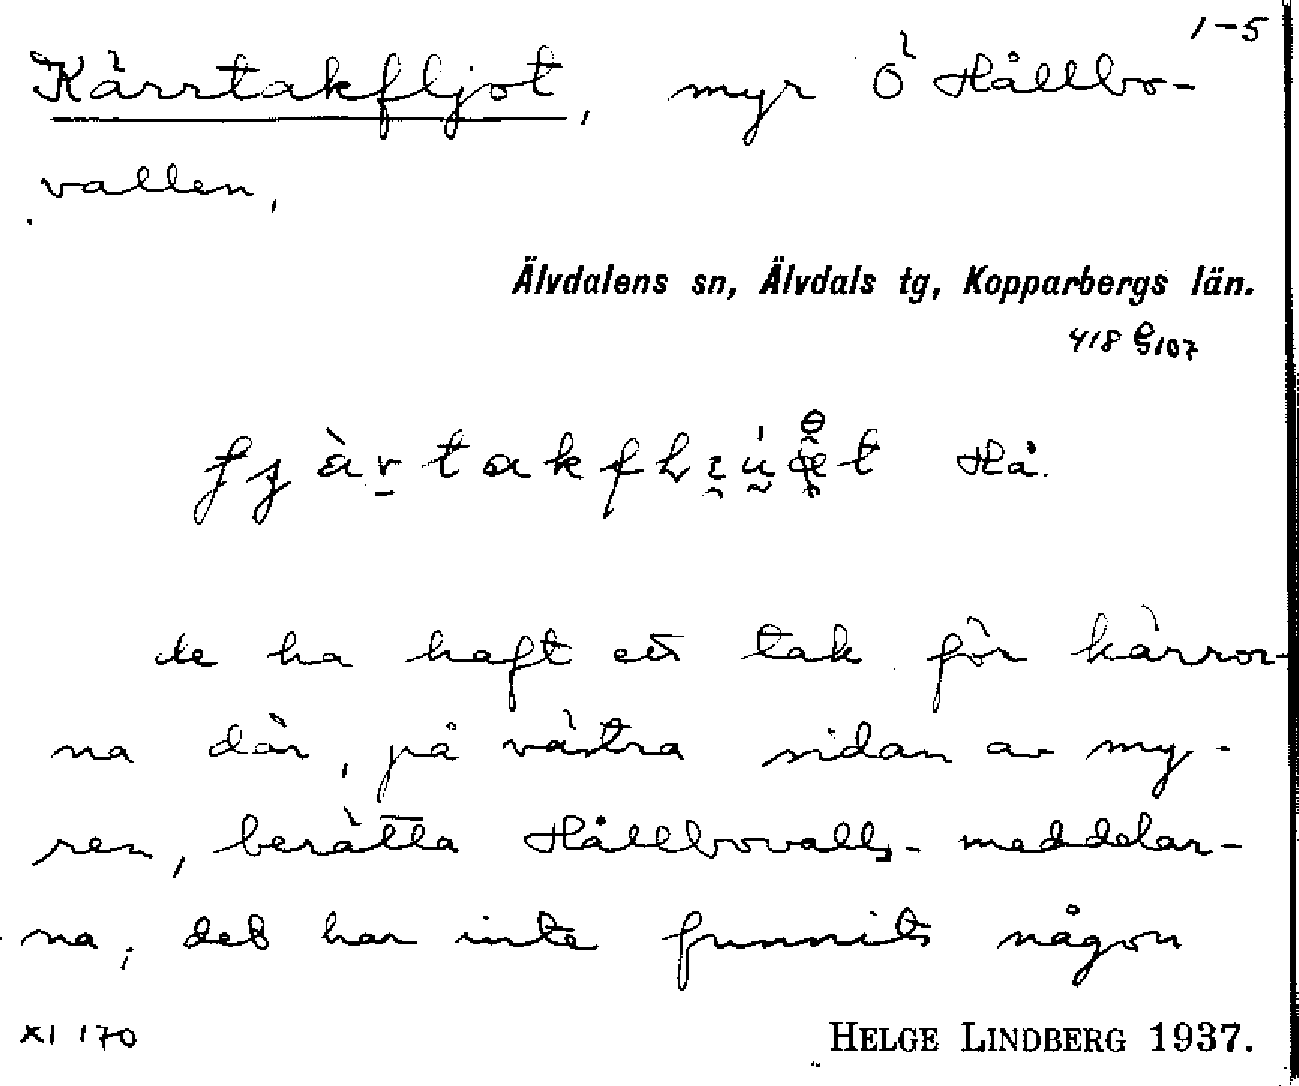 1-5
Kärrtakfljot, myr Ö Hållbo-
vallen,
Älvdalens sn, Älvdals tg, Kopparbergs län.
418 107
Hå.
de ha haft ett tak för kärror-
na där, på västra sidan av my-
ren, berätta Hållbovalls-meddelar-
na, det har inte funnits någon
XI 170
HELGE LINDBERG 1937.